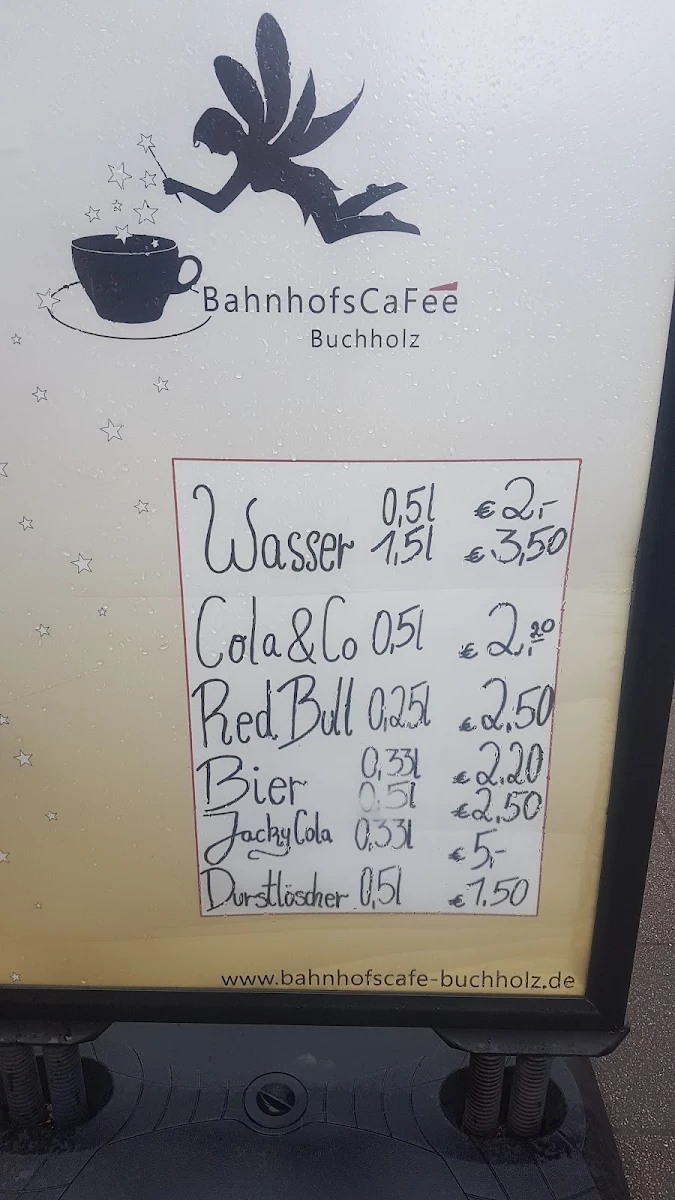 BahnhofsCaFée
Buchholz
Wasser 0,5l € 2,-
1,5l € 3,50
Cola & Co 0,5l € 2,20
Red Bull 0,25l € 2,50
Bier 0,33l € 2.20
0,5l € 2,50
Jacky Cola 0,33l € 5,-
Durstlöscher 0,5l € 1.50
www.bahnhofscafe-buchholz.de